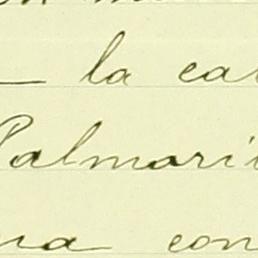 la ca
Palmari
na con